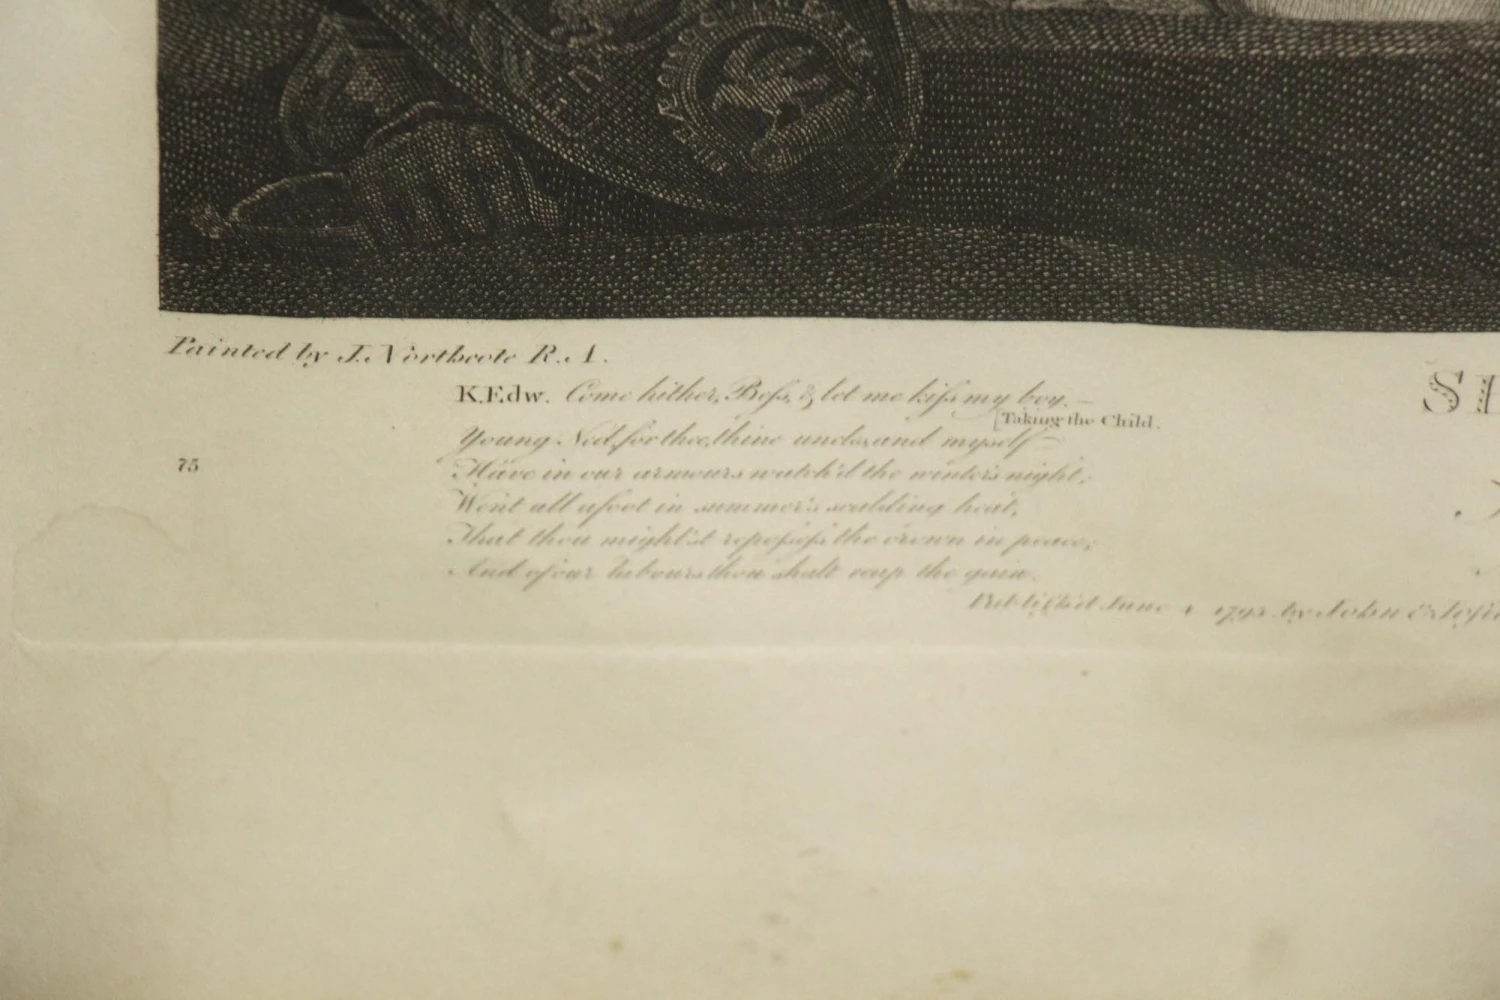 Painted by J. Northcote R.A.
K. Edw. Come hither, Beſs, & let me kiſs my boy. —
[Taking the Child.
Young Ned, for thee, thine uncles, and myself —
Have in our armours watch'd the winter's night;
Went all afoot in summer's scalding heat,
That thou might'st repoſseſs the crown in peace;
And of our labours thou shalt reap the gain.
75
Publish'd June 4 1795 by John & Josia
SH